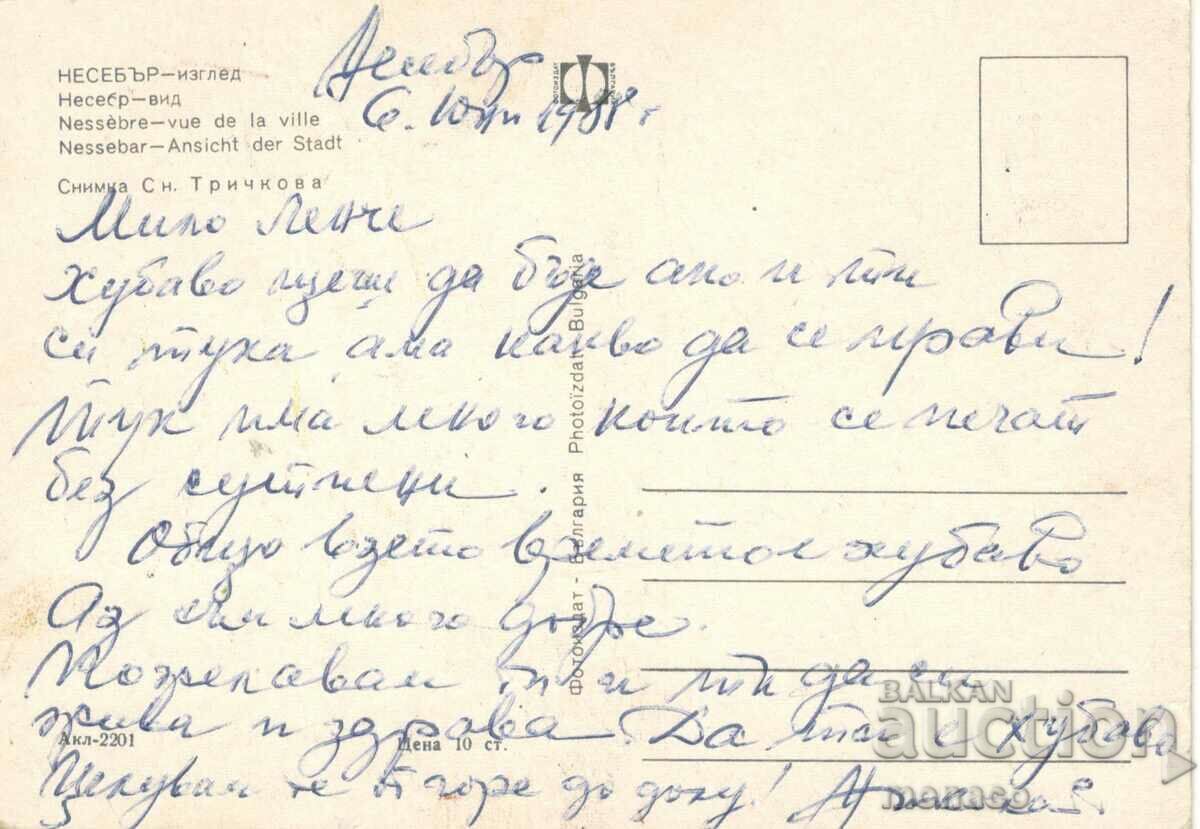 НЕСЕБЪР—изглед
Несебр—вид
Nessèbre—vue de la ville
Nessebar—Ansicht der Stadt
Снимка Сн. Тричкова
Несебър
6. Юни 1988 г.
ФОТОИЗДАТ
БЪЛГАРИЯ
Мило Ленче
хубаво щеши да бъде ако и ти
си тука ама какво да се прави!
Тук има много които се печат
без сутиени.
Общо взето времето е хубаво
Аз съм много добре.
Пожелавам ти и ти да си
жива и здрава. Да ти е хубаво
Целувам те от горе до долу!
Фотоиздат - България Photoizdat - Bulgaria
Акл-2201
Цена 10 ст.
BALKAN
auction
monaco